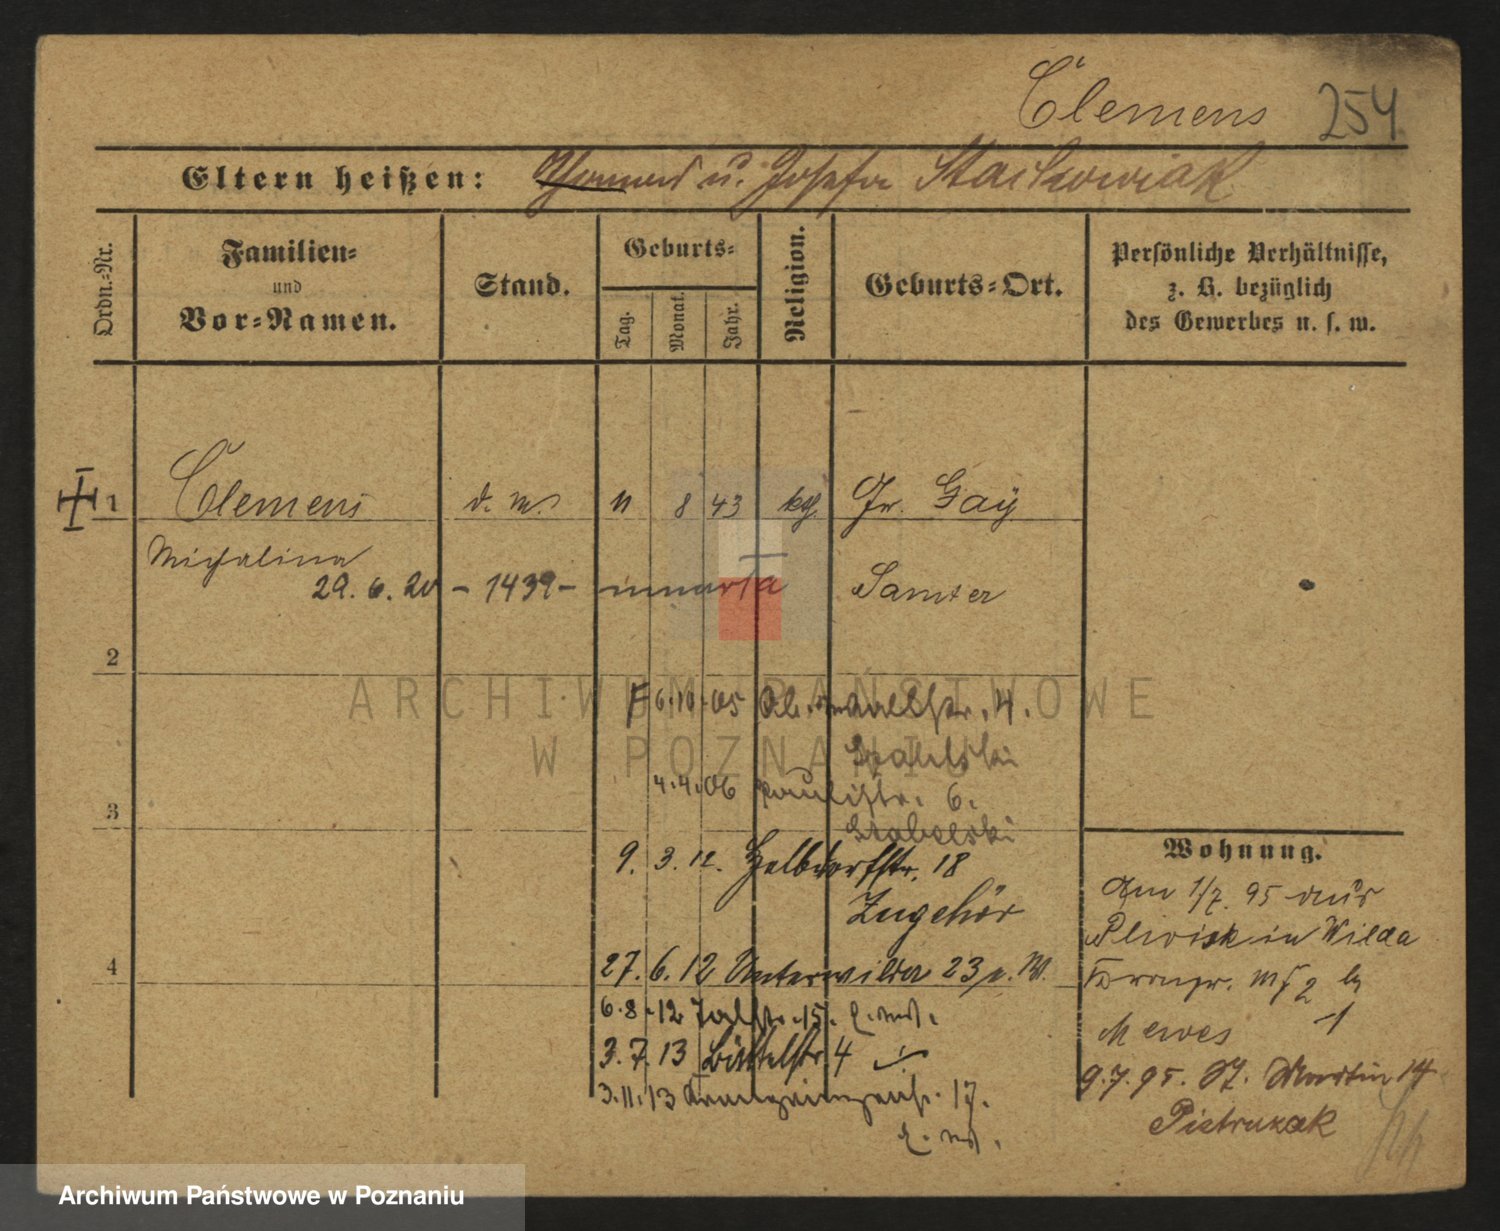 Clemens 254
Eltern heißen: Thomas u. Josefa Stachowiak
Ordn.=Nr.
Familien=
und
Vor=Namen.
Stand.
Geburts=
Tag.
Monat.
Jahr.
Religion.
Geburts=Ort.
Persönliche Verhältnisse,
z. B. bezüglich
des Gewerbes u. s. w.
1 Clemens d. M. 11 8 43 kth. Gr. Gay
Michalina
29. 6. 20 – 1439 – umarła Samter
2
6.10.05 Ob. Wallstr. 4.
4.4.06 Paulistr. 6.
3
9. 3. 12. Helldorfstr. 18
Zugehör
4
27. 6. 12 Unterwilda 23
6.8.12 Talstr. 15.
3. 7. 13 Büttelstr. 4
3.11.13 17.
Wohnung.
Am 1/7. 95 aus
Plewisk in Wilda
Mewes
9.7.95. St. Martin 14
Pietruszak
ARCHIWUM PAŃSTWOWE
W POZNANIU
Archiwum Państwowe w Poznaniu